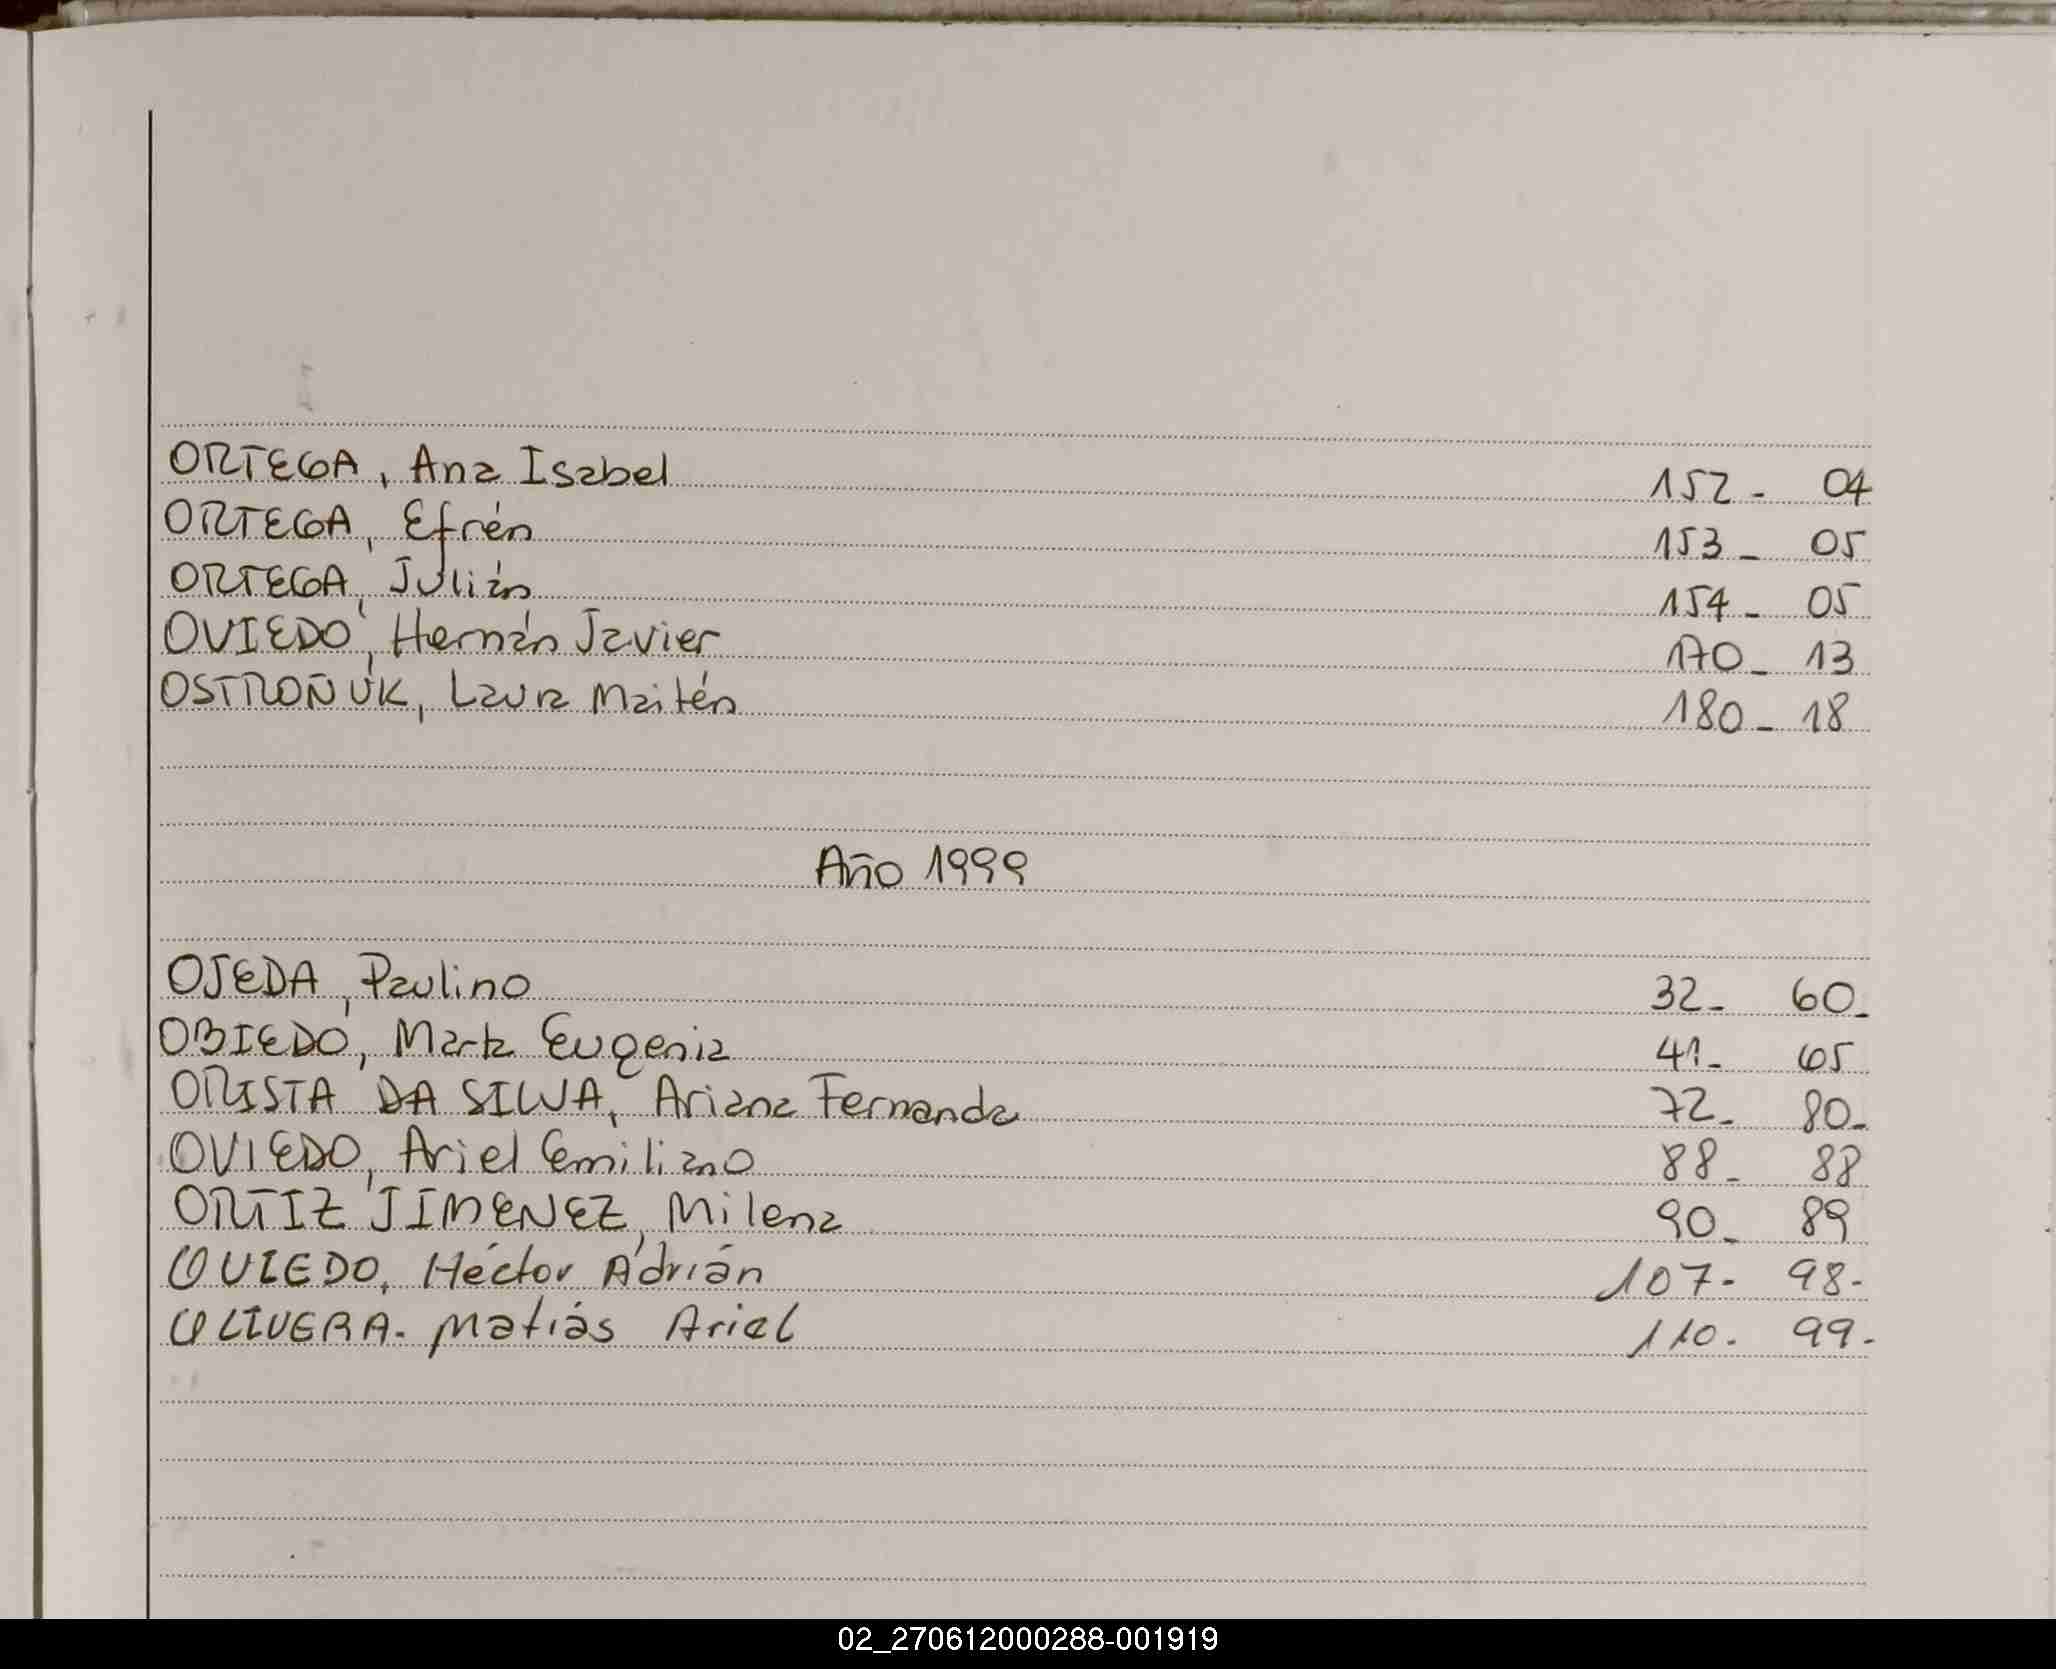 ORTEGA, Ana Isabel 152- 04
ORTEGA, Efrén 153- 05
ORTEGA, Julián 154- 05
OVIEDO, Hernán Javier 170- 13
OSTROÑUK, Laura Maitén 180- 18
Año 1999
OJEDA, Paulino 32- 60-
OBIEDO, Marta Eugenia 41- 65
ORISTA DA SILVA, Ariana Fernanda 72- 80-
OVIEDO, Ariel Emiliano 88- 88
ORTIZ JIMENEZ, Milena 90- 89
OVIEDO, Héctor Adrián 107- 98-
OLIVERA- Matiás Ariel 110- 99-
02_270612000288-001919